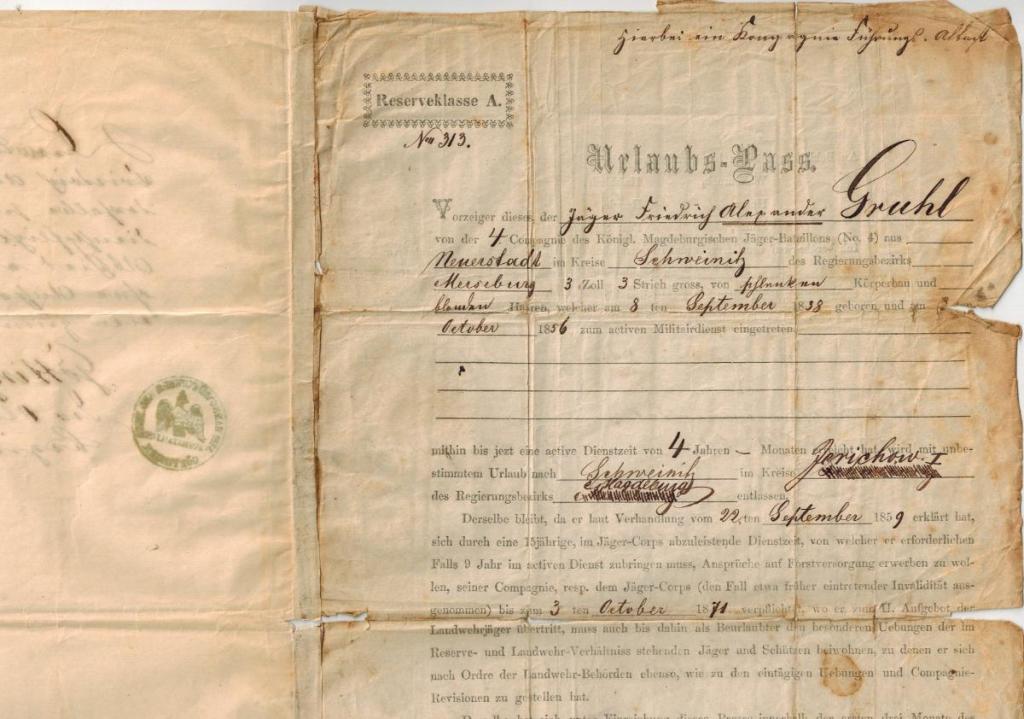 Hierbei ein Kompagnie Führungs-Attest
Reserveklasse A.
Nro 313.
Urlaubs-Pass.
Vorzeiger dieses, der Jäger Friedrich Alexander Gruhl
von der 4 Compagnie des Königl. Magdeburgischen Jäger-Bataillons (No. 4) aus
Neuerstadt im Kreise Schweinitz des Regierungsbezirks
Merseburg 3 Zoll 3 Strich gross, von schlenken Körperbau und
blonden Haaren, welcher am 8 ten September 1838 geboren, und am 3
October 1856 zum activen Militairdienst eingetreten.
mithin bis jezt eine active Dienstzeit von 4 Jahren – Monaten erreicht hat, wird mit unbe-
stimmtem Urlaub nach Schweinitz im Kreise Jerichow I
des Regierungsbezirks Magdeburg entlassen.
Derselbe bleibt, da er laut Verhandlung vom 22 ten September 1859 erklärt hat,
sich durch eine 15jährige, im Jäger-Corps abzuleistende Dienstzeit, von welcher er erforderlichen
Falls 9 Jahr im activen Dienst zubringen muss, Ansprüche auf Forstversorgung erwerben zu wol-
len, seiner Compagnie, resp. dem Jäger-Corps (den Fall etwa früher eintretender Invalidität aus-
genommen) bis zum 3 ten October 1871 verpflichtet, wo er zum II. Aufgebot der
Landwehrjäger übertritt, muss auch bis dahin als Beurlaubter den besonderen Uebungen der im
Reserve- und Landwehr-Verhältniss stehenden Jäger und Schützen beiwohnen, zu denen er sich
nach Ordre der Landwehr-Behörden ebenso, wie zu den eintägigen Uebungen und Compagnie-
Revisionen zu gestellen hat.